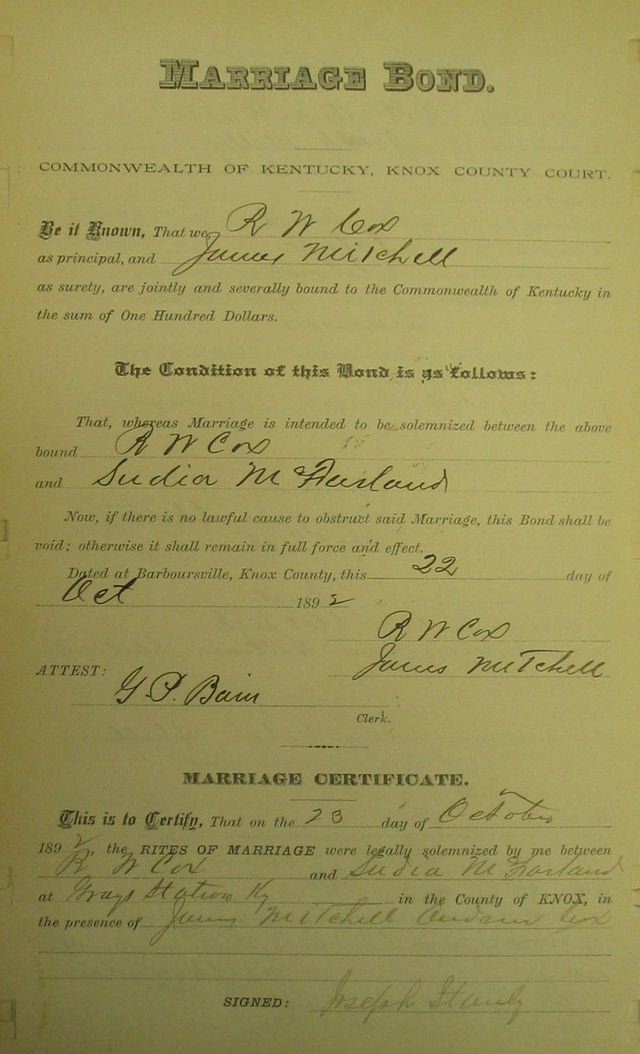 MARRIAGE BOND.
COMMONWEALTH OF KENTUCKY, KNOX COUNTY COURT.
Be it Known, That we R W Cox
as principal, and James Mitchell
as surety, are jointly and severally bound to the Commonwealth of Kentucky in
the sum of One Hundred Dollars.
The Condition of this Bond is as follows:
That, whereas Marriage is intended to be solemnized between the above
bound R W Cox
and Sudia McFarland
Now, if there is no lawful cause to obstruct said Marriage, this Bond shall be
void; otherwise it shall remain in full force and effect.
Dated at Barboursville, Knox County, this 22 day of
Oct 1892
R W Cox
ATTEST: James Mitchell
G. P. Bain
Clerk.
MARRIAGE CERTIFICATE.
This is to Certify, That on the 23 day of October
1892, the RITES OF MARRIAGE were legally solemnized by me between
R W Cox and Sudia McFarland
at Grays Station Ky in the County of KNOX, in
the presence of James Mitchell Andrew Cox
SIGNED: Joseph Stanly